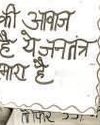 की आवाज
है ये जनतंत्र
मारा है